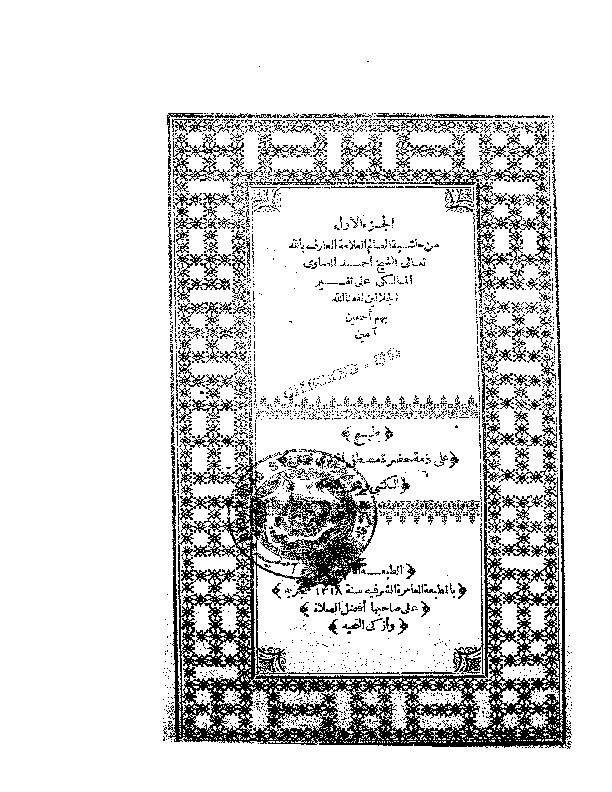 الجزء الاول
من حاشية العالم العلامة العارف بالله
تعالى الشيخ أحمد الصاوى
المالكى على تفسير
الجلالين نفعنا الله
بهم أجمعين
آمين
﴿ طبع ﴾
﴿ على ذمة حضرة مصطفى
﴿ الكتبى
﴿ الطبعة
﴿ بالمطبعة العامرة الشرفيه سنة ١٣١٨ هجريه ﴾
﴿ على صاحبها أفضل الصلاة ﴾
﴿ وأزكى التحيه ﴾